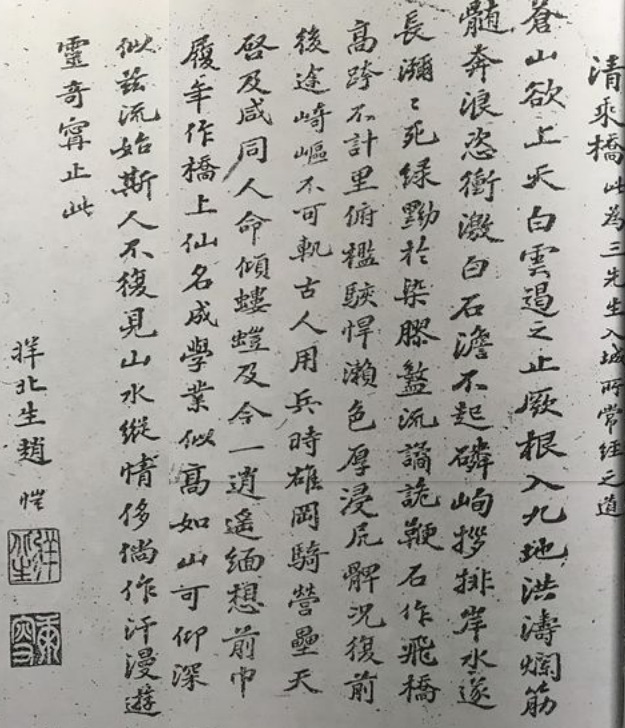 清乘橋此為三先生入城所常經之道
蒼山欲上天白雲遏之止厥根入九地洪濤爛筋
髓奔浪恣衝激白石澹不起磷峋拶排岸水遂
長瀰〻死綠黝於染膠盭流譎詭鞭石作飛橋
高跨不計里俯檻駭悍瀨色厚浸尻髀況復前
後途崎嶇不可軌古人用兵時雄岡騎營壘天
啓及咸同人命傾螻螘及今一逍遙緬想前巾
履年作橋上仙名成學業似高如山可仰深
似茲流始斯人不復見山水縱情侈倘作汗漫遊
靈奇甯止此
牂北生趙愷